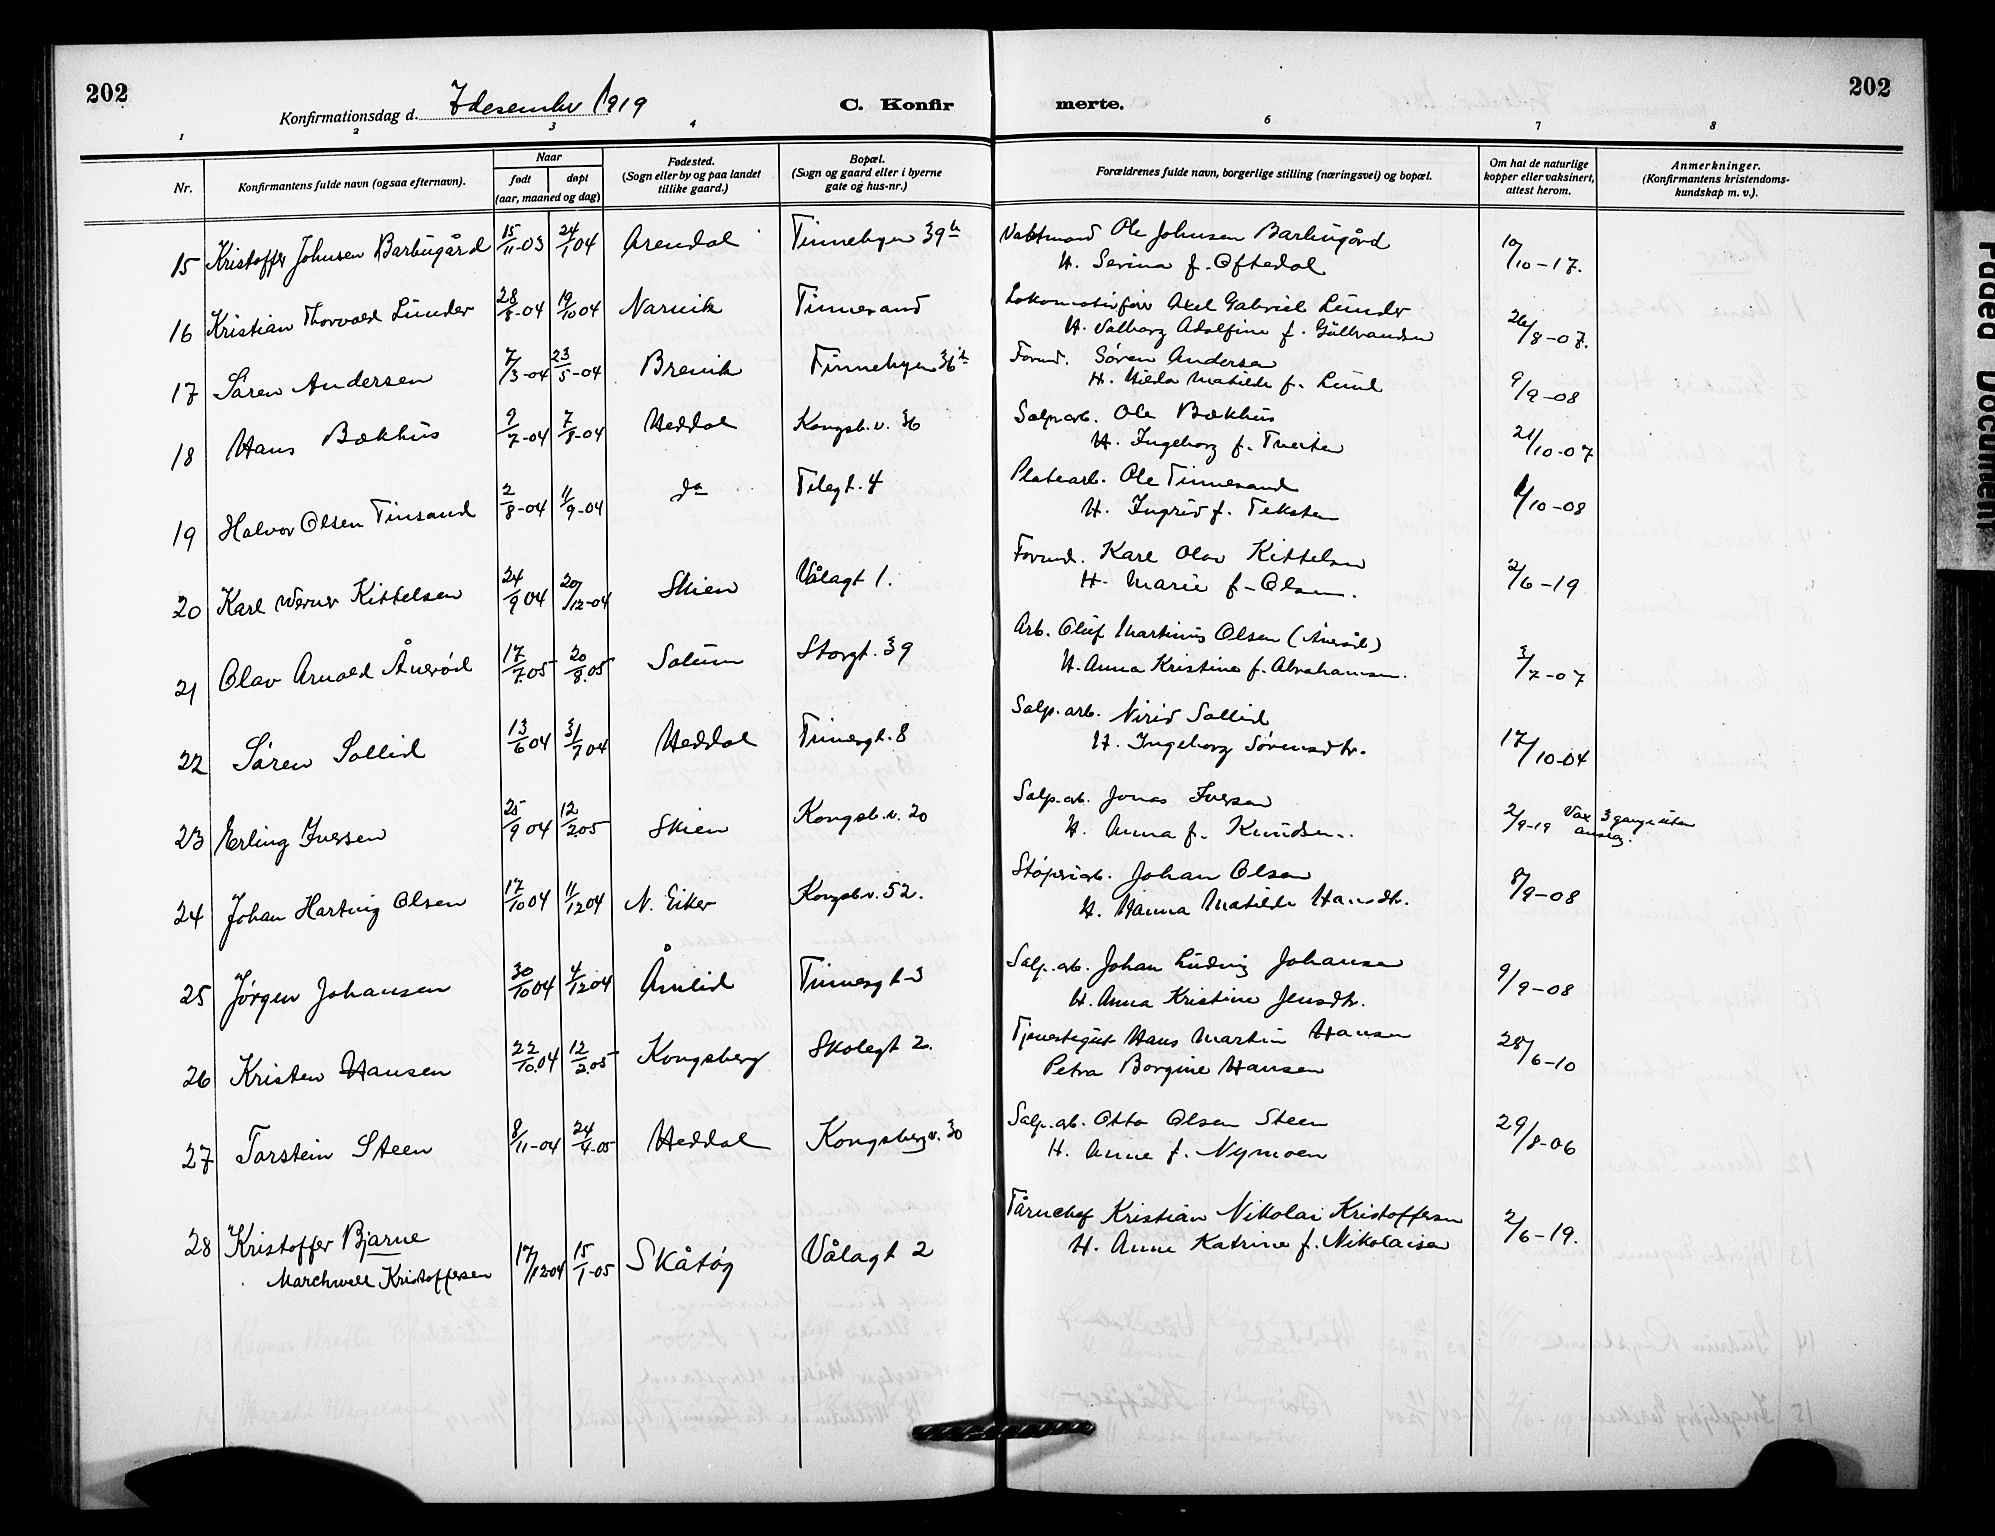 202
Konfirmationsdag d. 7 desember 1919
C. Konfirmerte.
202
1 2 3 4 6 7 8
Nr.
Konfirmantens fulde navn (ogsaa efternavn).
Naar
født
døpt
(aar, maaned og dag)
Fødested.
(Sogn eller by og paa landet
tillike gaard.)
Bopæl.
(Sogn og gaard eller i byerne
gate og hus-nr.)
Forældrenes fulde navn, borgerlige stilling (næringsvei) og bopæl.
Om hat de naturlige
kopper eller vaksinert,
attest herom.
Anmerkninger.
(Konfirmantens kristendoms-
kundskap m. v.).
15 Kristoffer Johnsen Barbugård 15/11-03 24/1 04 Arendal Tinnebyen 39b Vaktmand Ole Johnsen Barbugård 10/10-17.
H. Serina f. Oftedal
16 Kristian Thorvald Lunder 28/8-04 19/10 04 Narvik Tinnesand Lokomotivfører Axel Gabriel Lunder 26/8-07.
H. Valborg Adolfine f. Gulbrandsen
17 Søren Andersen 7/3-04 23/5-04 Brevik Tinnebyen 36b Formd. Søren Andersen 9/9-08
H. Hilda Matilde f. Lund
18 Hans Bækhus 9/7-04 7/8-04 Heddal Kongsb.v. 36 Salp.arb. Ole Bækhus 21/10-07
H. Ingeborg f. Tveiten
19 Halvor Olsen Tinsand 2/8-04 11/9-04 do Telegt. 4 Platearb. Ole Tinnesand 1/10-08
H. Ingrid f. Teksten
20 Karl Werner Kittelsen 24/9 04 20/12-04 Skien Vålagt 1. Formd. Karl Olav Kittelsen 2/6-19
H. Marie f. Olsen.
21 Olav Arnold Ånerød 17/7.05 20/8.05 Solum Storgt. 39 Arb. Oluf Martinus Olsen (Ånerød) 3/7-07
H. Anna Kristine f. Abrahamsen.
22 Søren Sollid 13/6 04 31/7 04 Heddal Tinnesgt. 8 Salp. arb. Nirid Sollid 17/10-04
H. Ingeborg Sørensdtr.
23 Erling Iversen 25/9 04 12/2.05 Skien Kongsb.v. 20 Salp. arb. Jonas Iversen 2/9-19 Vax 3 gange uten
H. Anna f. Knudsen. anslag.
24 Johan Hartvig Olsen 17/10 04 11/12 04 N. Eiker Kongsb.v. 52. Støperiarb. Johan Olsen 8/9-08
H. Hanna Matilde Hansdtr.
25 Jørgen Johansen 30/10 04 4/12 04 Åmlid Tinnesgt-3 Salp. arb. Johan Ludvig Johansen 9/9-08
H. Anna Kristine Jensdtr.
26 Kristen Hansen 22/10.04 12/2.05 Kongsberg Skolegt 2. Tjenestegut Hans Martin Hansen 28/6-10
Petra Borgine Hansen
27 Torstein Steen 8/11-04 24/4-05 Heddal Kongsberg v. 30 Salp. arb. Otto Olsen Steen 29/8-06
H. Anne f. Nymoen
28 Kristoffer Bjarne 17/12-04 15/1-05 Skåtøy Vålagt 2 Tårnchef Kristian Nikolai Kristoffersen 2/6-19.
Marchwell Kristoffersen H. Anne Katrine f. Nikolaisen
Faded Document